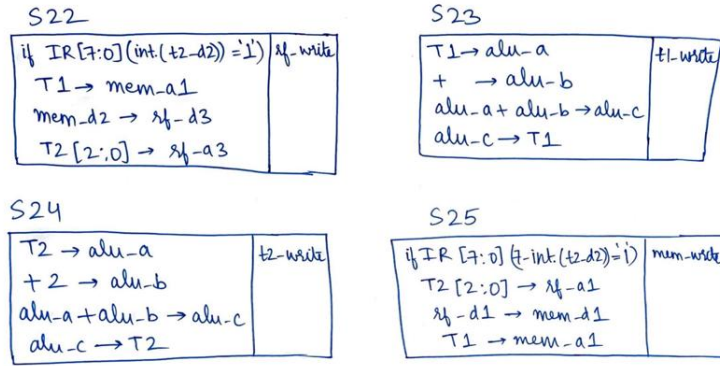 S22
if IR[7:0](int.(t2-d2)) ='1') rf-write
T1 → mem-a1
mem-d2 → rf-d3
T2[2:0] → rf-a3
S23
T1 → alu-a t1-write
+ → alu-b
alu-a + alu-b → alu-c
alu-c → T1
S24
T2 → alu-a t2-write
+2 → alu-b
alu-a + alu-b → alu-c
alu-c → T2
S25
if IR[7:0](7-int.(t2-d2)='1') mem-write
T2[2:0] → rf-a1
rf-d1 → mem-d1
T1 → mem-a1